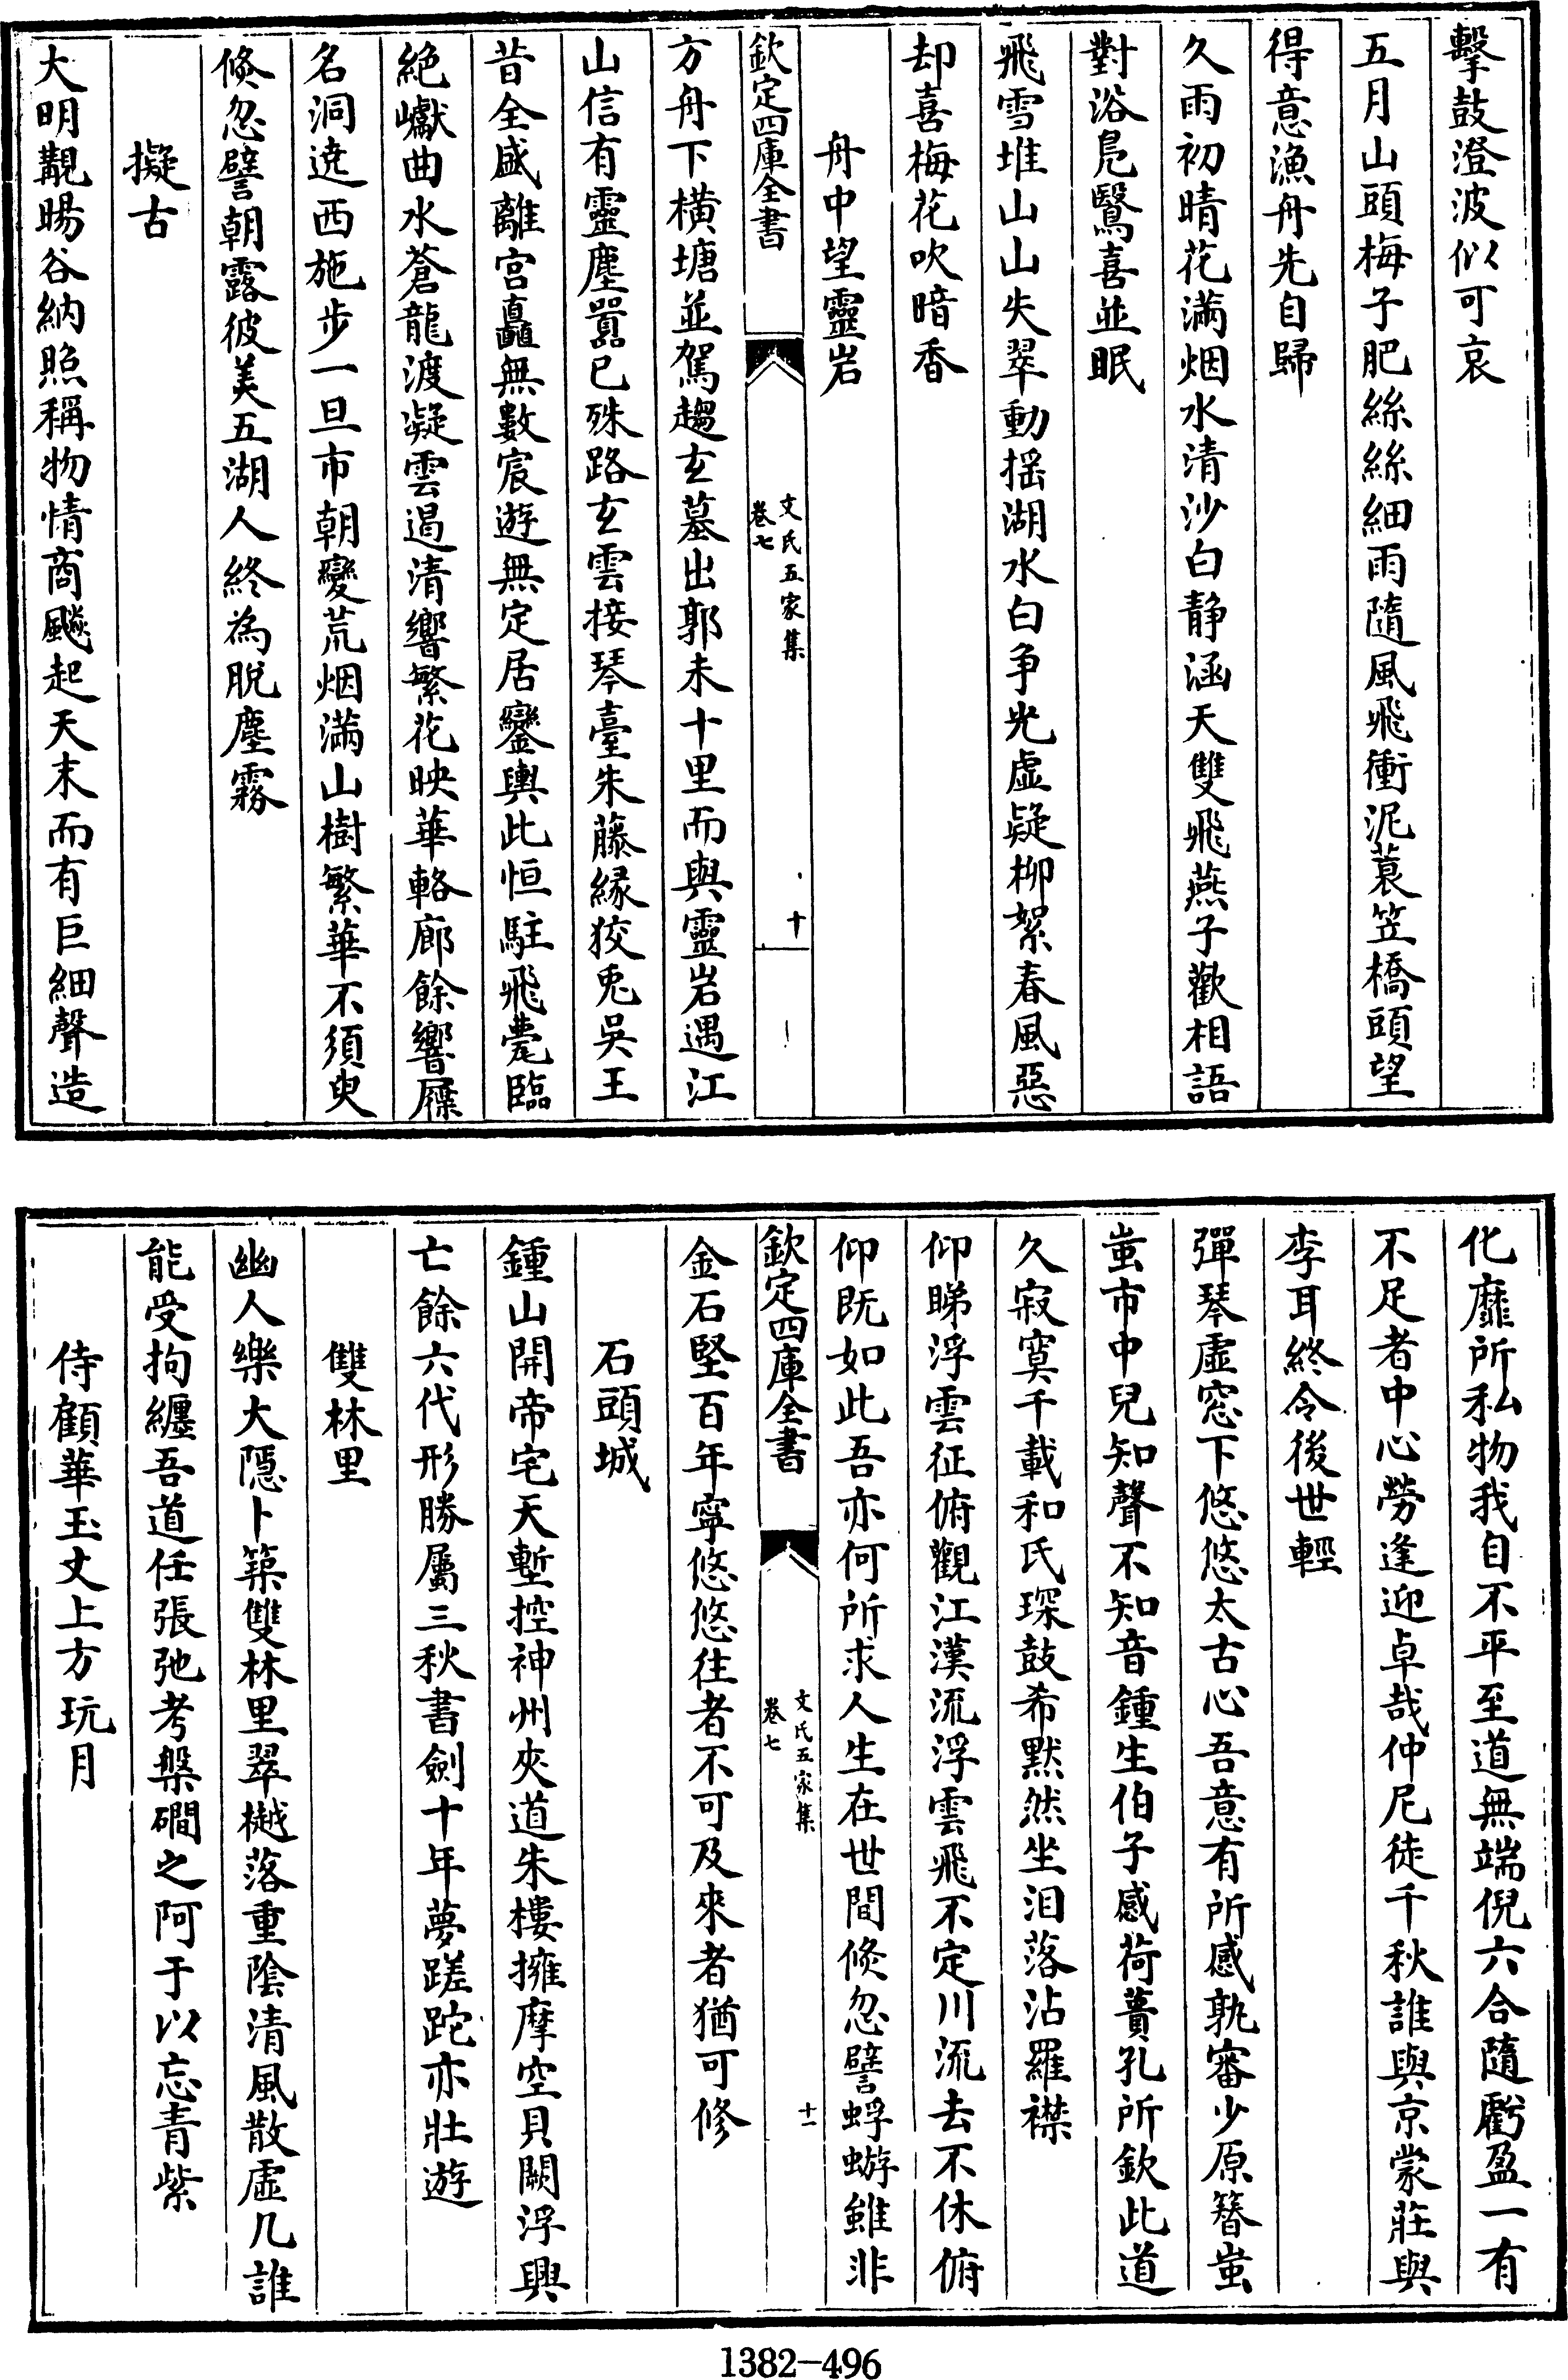 擊鼓澄波似可哀
五月山頭梅子肥絲絲細雨隨風飛衝泥蓑笠橋頭望
得意漁舟先自歸
久雨初晴花滿烟水清沙白静涵天雙飛燕子歡相語
對浴鳬鷖喜並眠
飛雪堆山山失翠動揺湖水白争光虚疑柳絮春風惡
却喜梅花吹暗香
舟中望靈岩
欽定四庫全書
文氏五家集
卷七
十
方舟下横塘並駕趨玄墓出郭未十里而與靈岩遇江
山信有靈塵囂已殊路玄雲接琴臺朱藤縁狡兎吳王
昔全盛離宫矗無數宸遊無定居鑾輿此恒駐飛甍臨
絶巘曲水蒼龍渡凝雲遏清響繁花映華輅廊餘響屧
名洞遶西施步一旦市朝變荒烟滿山樹繁華不須臾
倐忽譬朝露彼美五湖人終為脱塵霧
擬古
大明覯暘谷納照稱物情商飈起天末而有巨細聲造
化靡所私物我自不平至道無端倪六合隨虧盈一有
不足者中心勞逢迎卓哉仲尼徒千秋誰與京蒙莊與
李耳終令後世輕
彈琴虚窓下悠悠太古心吾意有所感孰審少原簪蚩
蚩市中兒知聲不知音鍾生伯子感荷蕢孔所欽此道
久寂寞千載和氏琛鼓希默然坐泪落沾羅襟
仰睇浮雲征俯觀江漢流浮雲飛不定川流去不休俯
仰既如此吾亦何所求人生在世間倐忽譬蜉蝣雖非
欽定四庫全書
文氏五家集
卷七
十一
金石堅百年寧悠悠往者不可及來者猶可修
石頭城
鍾山開帝宅天塹控神州夾道朱樓擁摩空貝闕浮興
亡餘六代形勝屬三秋書劍十年夢蹉跎亦壯遊
雙林里
幽人樂大隱卜築雙林里翠樾落重陰清風散虚几誰
能受拘纏吾道任張弛考槃磵之阿于以忘青紫
侍顧華玉丈上方玩月
1382-496